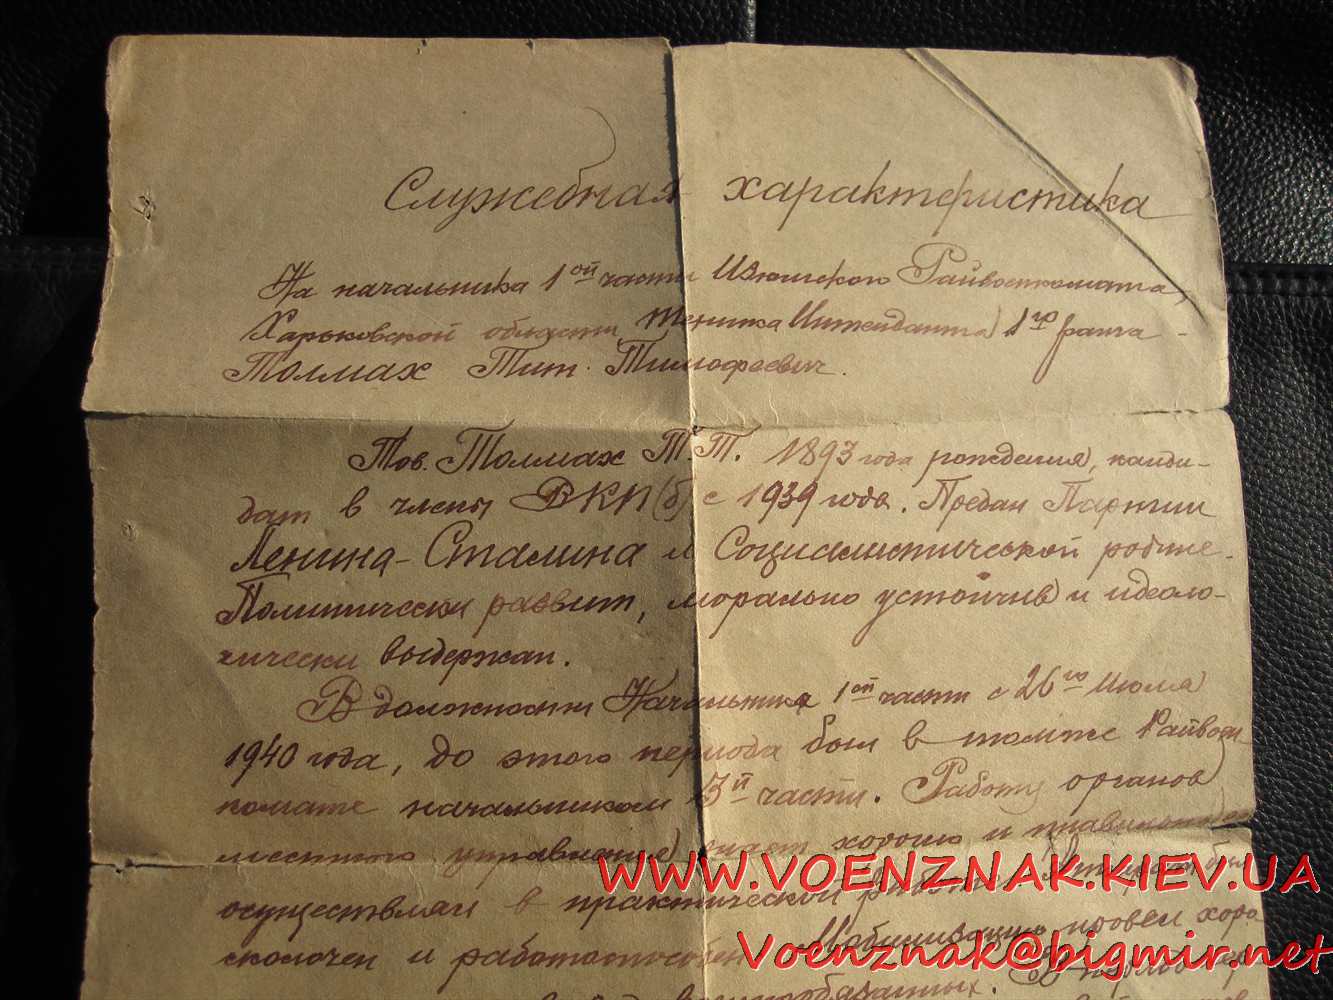 Служебная характеристика
На начальника 1ой части Изюмского Райвоенкомата,
Харьковской области, Техника Интенданта 1го ранга
Толмах Тит Тимофеевич.
Тов. Толмах Т.Т. 1893 года рождения, канди-
дат в члены ВКП(б) с 1939 года. Предан Партии
Ленина-Сталина и Социалистической родине.
Политически развит, морально устойчив и идеоло-
гически выдержан.
В должности Начальника 1ой части с 26го Июля
1940 года, до этого периода был в томже Райвоен
комате начальником 3й части. Работу органов
местного управления знает хорошо и правильно
осуществлял в практической работе. был
сколочен и работоспособен. Мобилизацию провел хоро
военнообязанных.
WWW.VOENZNAK.KIEV.UA
Voenznak@bigmir.net